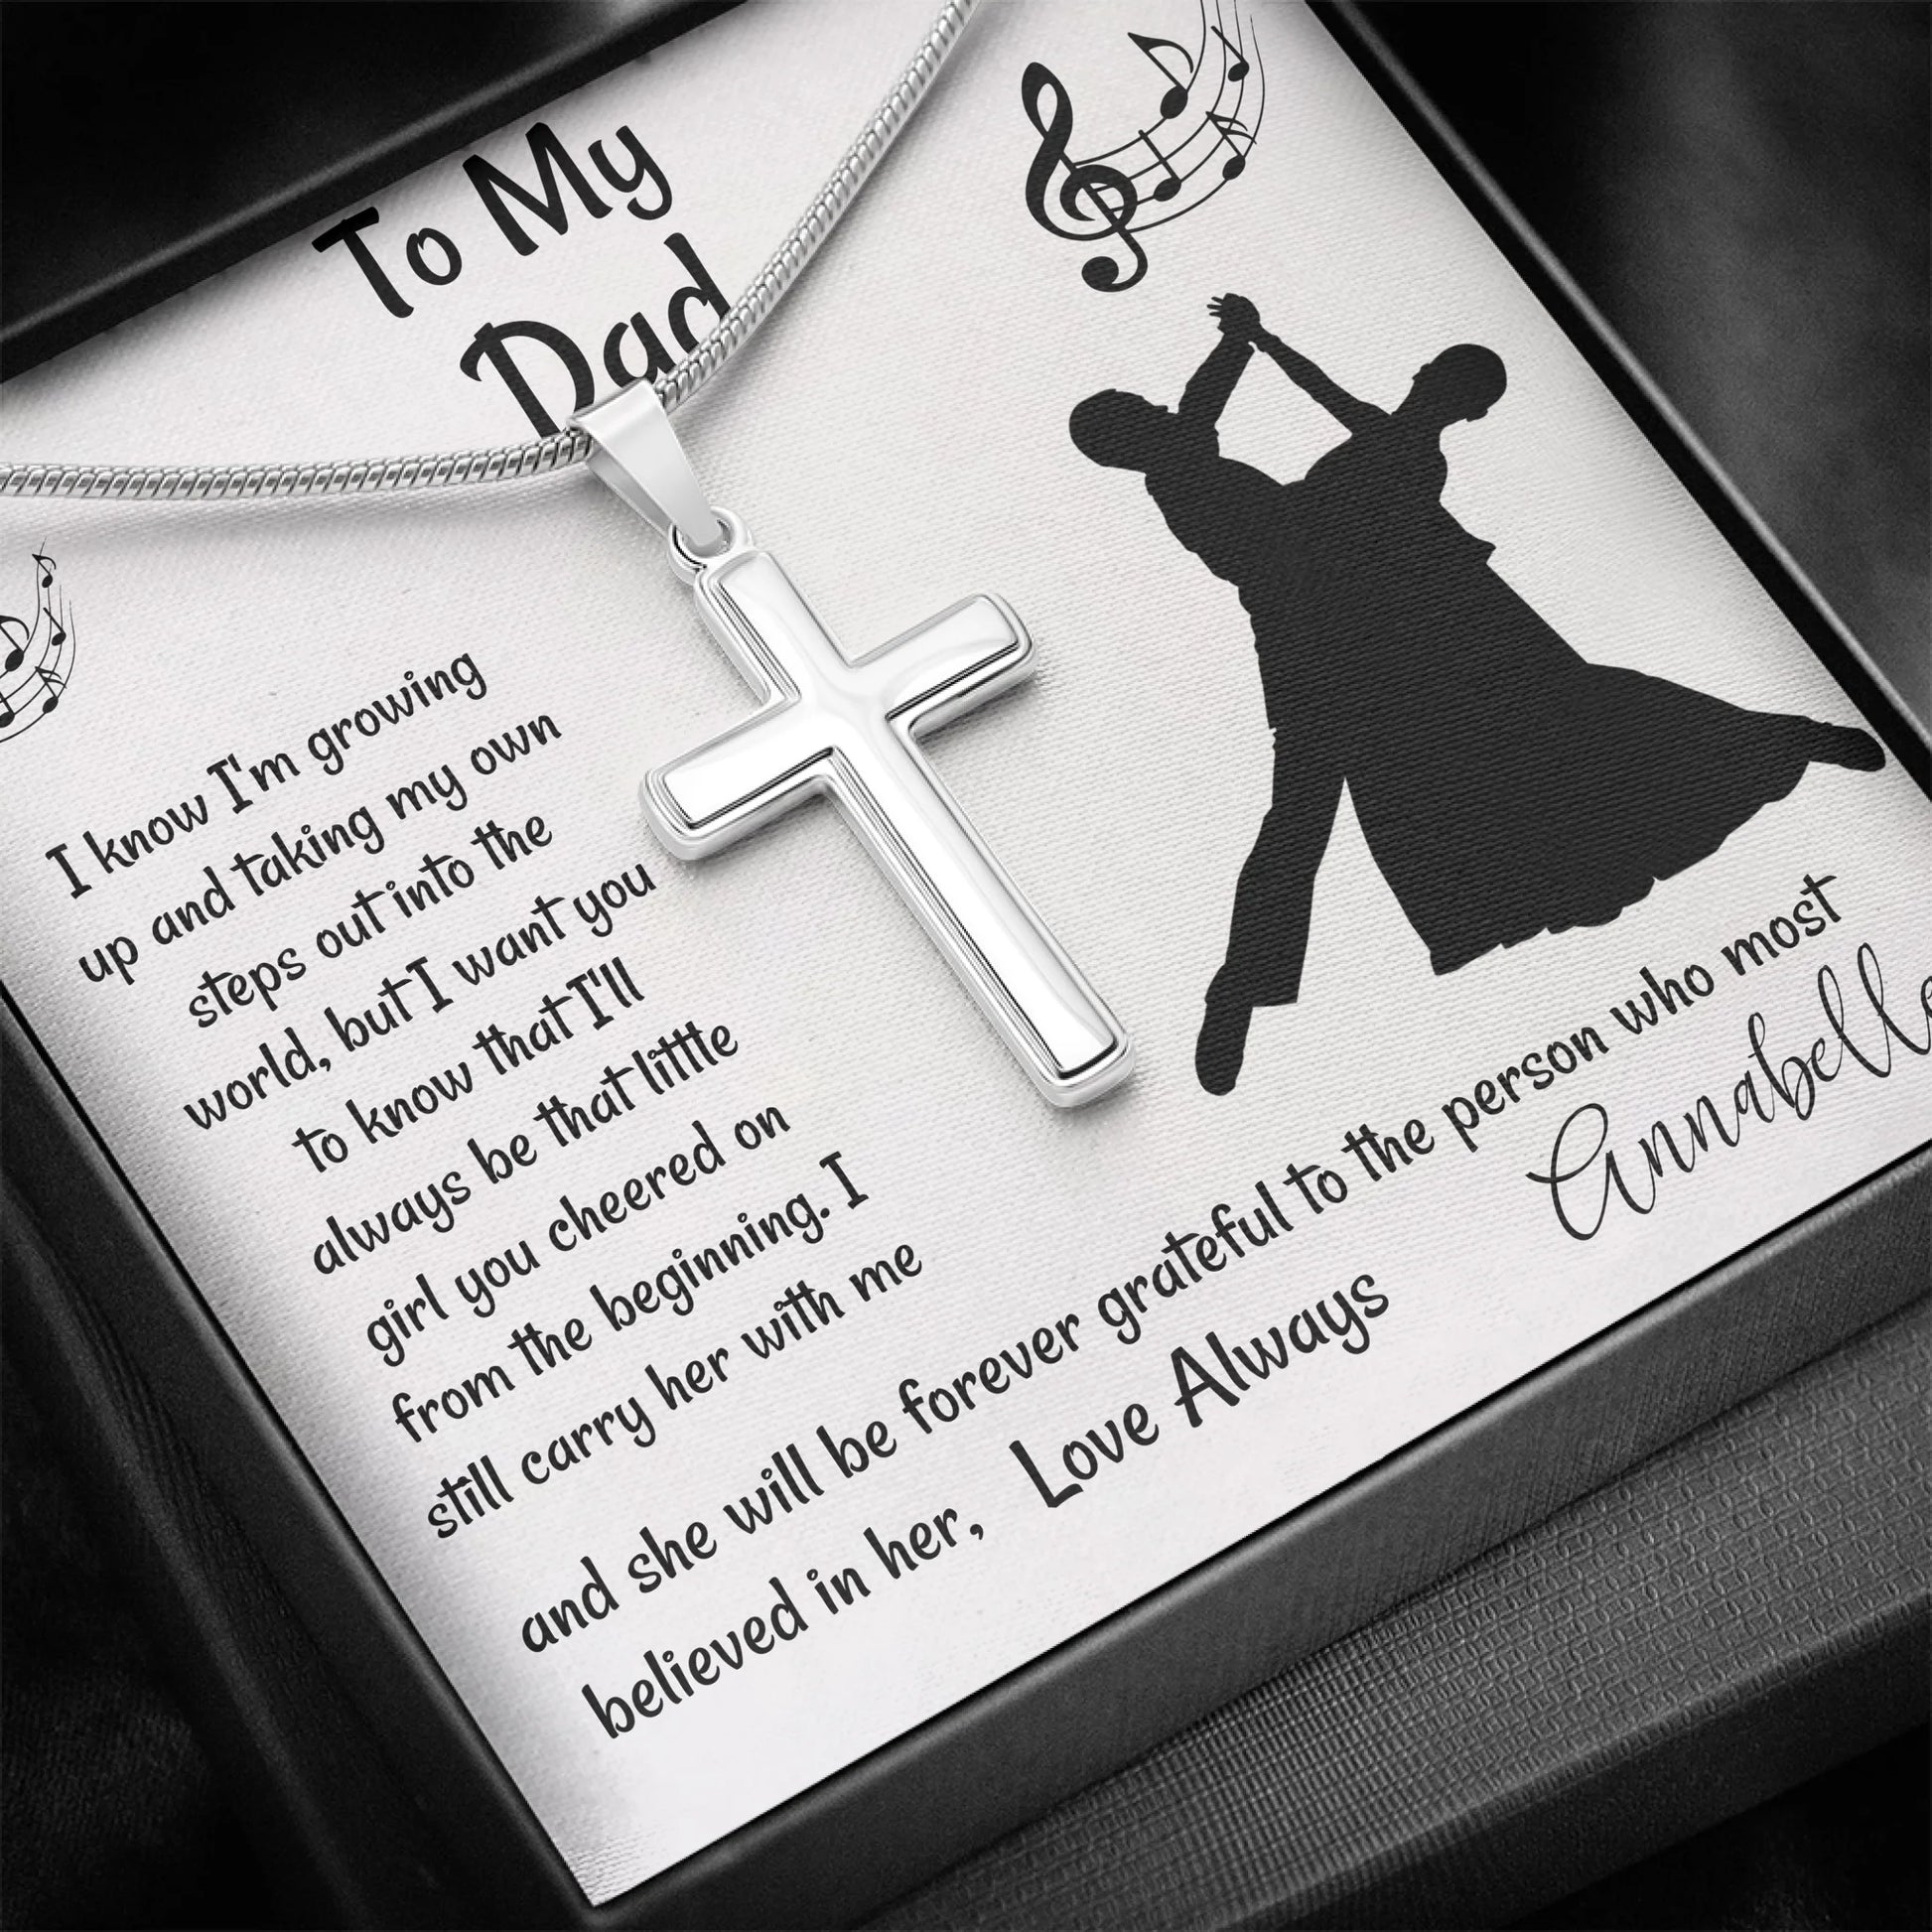 To My
Dad
I know I'm growing
up and taking my own
steps out into the
world, but I want you
to know that I'll
always be that little
girl you cheered on
from the beginning. I
still carry her with me
and she will be forever grateful to the person who most
believed in her, Love Always
Annabelle